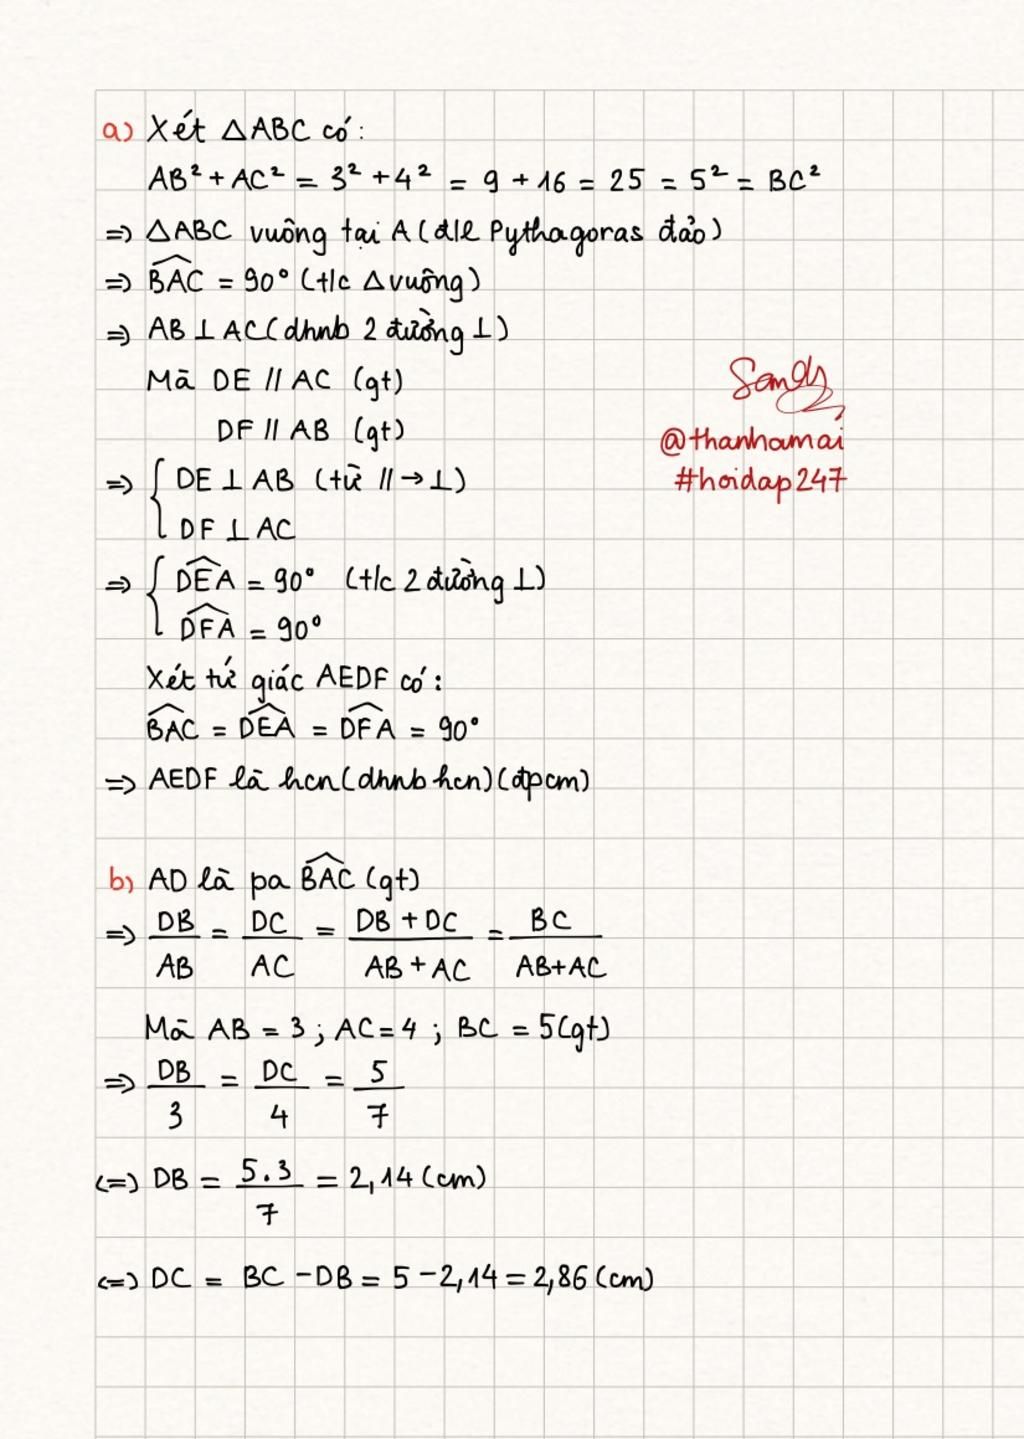 a) Xét △ABC có:
AB² + AC² = 3² + 4² = 9 + 16 = 25 = 5² = BC²
=> △ABC vuông tại A (đ/l Pythagoras đảo)
=> \widehat{BAC} = 90° (t/c △vuông)
=> AB ⊥ AC (dhnb 2 đường ⊥)
Mà DE // AC (gt)
DF // AB (gt)
=> { DE ⊥ AB (từ // → ⊥)
DF ⊥ AC
=> { \widehat{DEA} = 90° (t/c 2 đường ⊥)
\widehat{DFA} = 90°
Xét tứ giác AEDF có:
\widehat{BAC} = \widehat{DEA} = \widehat{DFA} = 90°
=> AEDF là hcn (dhnb hcn) (đpcm)
Sandy
@thanhamai
#hoidap247
b) AD là pa \widehat{BAC} (gt)
=> DB/AB = DC/AC = (DB + DC)/(AB + AC) = BC/(AB+AC)
Mà AB = 3 ; AC = 4 ; BC = 5 (gt)
=> DB/3 = DC/4 = 5/7
<=> DB = 5.3/7 = 2,14 (cm)
<=> DC = BC - DB = 5 - 2,14 = 2,86 (cm)